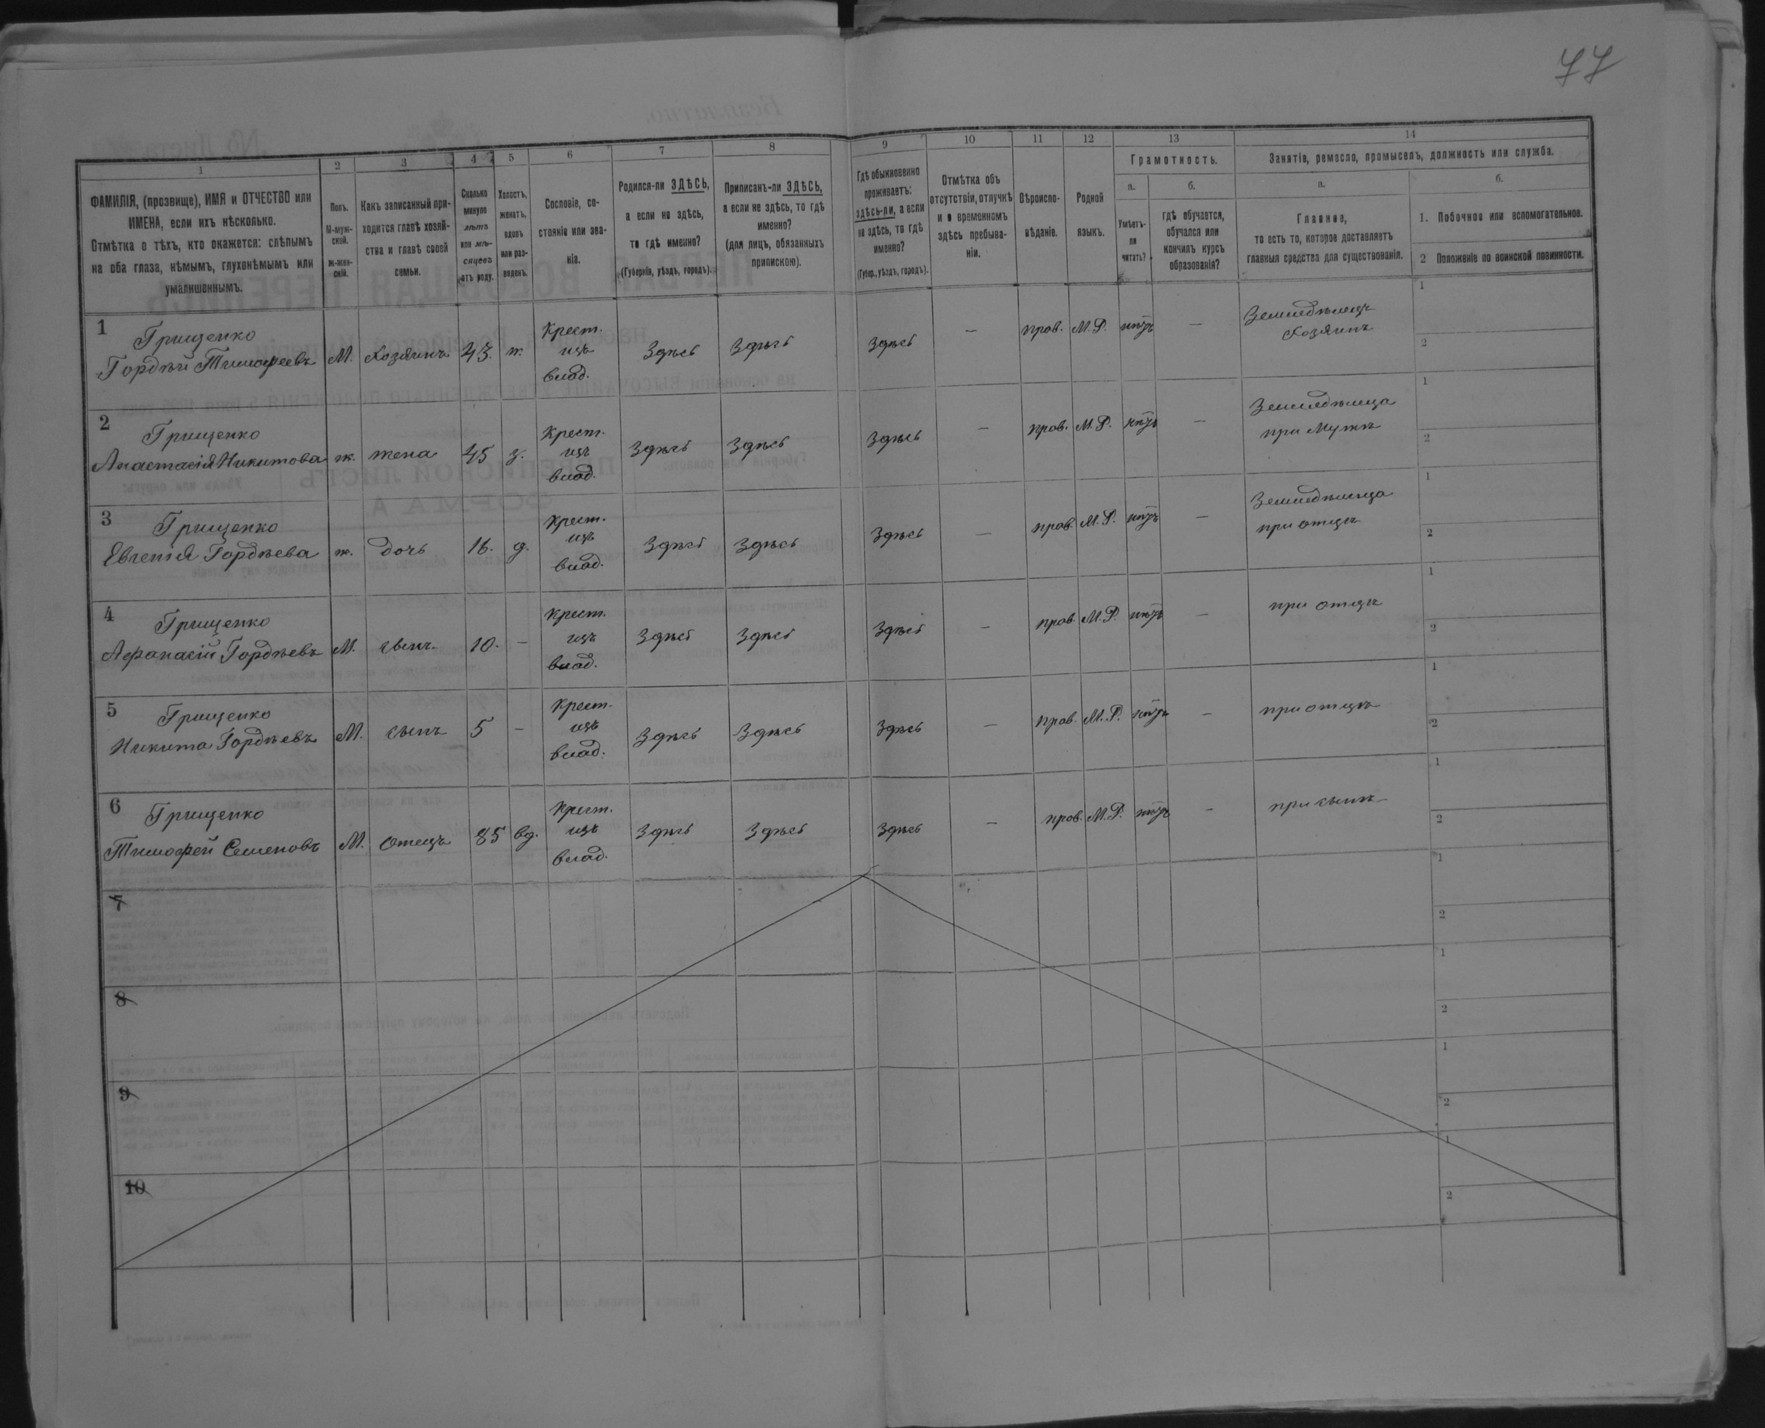 77
1
2
3
4
5
6
7
8
9
10
11
12
13
14
ФАМИЛІЯ, (прозвище), ИМЯ и ОТЧЕСТВО или
ИМЕНА, если ихъ нѣсколько.
Отмѣтка о тѣхъ, кто окажется: слѣпымъ
на оба глаза, нѣмымъ, глухонѣмымъ или
умалишеннымъ.
Полъ.
М-муж-
ской.
ж-жен-
скій.
Какъ записанный при-
ходится главѣ хозяй-
ства и главѣ своей
семьи.
Сколько
минуло
лѣтъ
или мѣ-
сяцевъ
отъ роду.
Холостъ,
женатъ,
вдовъ
или раз-
веденъ.
Сословіе, со-
стояніе или зва-
ніе.
Родился-ли ЗДѢСЬ,
а если не здѣсь,
то гдѣ именно?
(Губернія, уѣздъ, городъ).
Приписанъ-ли ЗДѢСЬ,
а если не здѣсь, то гдѣ
именно?
(для лицъ, обязанныхъ
припискою).
Гдѣ обыкновенно
проживаетъ:
здѣсь-ли, а если
не здѣсь, то гдѣ
именно?
(Губер., уѣздъ, городъ).
Отмѣтка объ
отсутствіи, отлучкѣ
и о временномъ
здѣсь пребыва-
ніи.
Вѣроиспо-
вѣданіе.
Родной
языкъ.
Грамотность.
а.
Умѣетъ-
ли
читать?
б.
гдѣ обучается,
обучался или
кончилъ курсъ
образованія?
Занятіе, ремесло, промыселъ, должность или служба.
а.
Главное,
то есть то, которое доставляетъ
главныя средства для существованія.
б.
1. Побочное или вспомогательное.
2 Положеніе по воинской повинности.
1 Грищенко
Гордѣй Тимофеевъ М. Хозяинъ 43. ж. Крест. изъ влад. Здѣсь Здѣсь Здѣсь — прав. М.Р. нѣтъ — Земледѣлецъ
Хозяинъ 1 2
2 Грищенко
Анастасія Никитова ж. жена 45 з. Крест. изъ влад. Здѣсь Здѣсь Здѣсь — прав. М.Р. нѣтъ — Земледѣлица
при мужѣ 1 2
3 Грищенко
Евгенія Гордѣева ж. дочь 16. д. Крест. изъ влад. Здѣсь Здѣсь Здѣсь — прав. М.Р. нѣтъ — Земледѣлица
при отцѣ 1 2
4 Грищенко
Афанасій Гордѣевъ М. сынъ 10. — Крест. изъ влад. Здѣсь Здѣсь Здѣсь — прав. М.Р. нѣтъ — при отцѣ 1 2
5 Грищенко
Никита Гордѣевъ М. сынъ 5 — Крест. изъ влад. Здѣсь Здѣсь Здѣсь — прав. М.Р. нѣтъ — при отцѣ 1 2
6 Грищенко
Тимофей Семеновъ М. отецъ 85 вд. Крест. изъ влад. Здѣсь Здѣсь Здѣсь — прав. М.Р. нѣтъ — при сынѣ 1 2
7 1 2
8 1 2
9 1 2
10 1 2